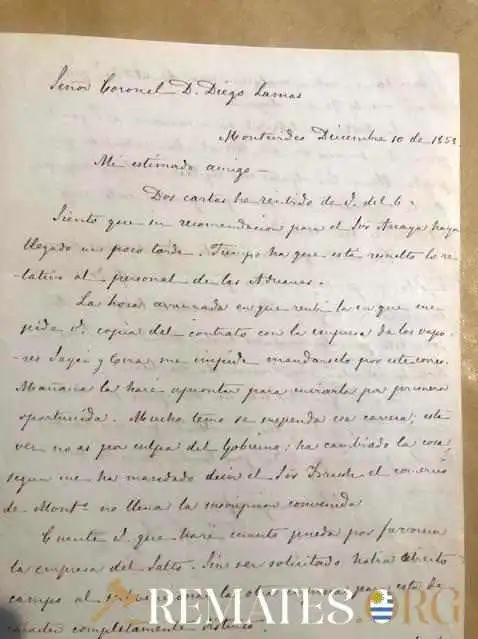 Señor Coronel D. Diego Lamas
Montevideo Diciembre 10 de 185
Mi estimado amigo -
Dos cartas he recibido de V. del 6 -
Siento que su recomendacion para el Sor Anaya haya
llegado un poco tarde. Tiempo ha que está resuelto lo re-
lativo al personal de las Aduanas.
La hora avanzada en que recibí la en que me
pide V. copia del contrato con la empresa de los vapo-
res y me impide mandarselo por este correo.
Mañana la haré aprontar para enviarla por primera
oportunidad. Mucho temo se suspenda esa carrera; esta
vez no es por culpa del Gobierno; ha cambiado la cosa,
segun me ha mandado decir el Sor el comercio
de Monto no llena la suscripcion convenida
Cuente V. que haré cuanto pueda por favorecer
la empresa del Salto. Sin ser solicitado habia abierto
campo al la otra empresa, pues esta de
caracter completamente distinto.
REMATES ORG